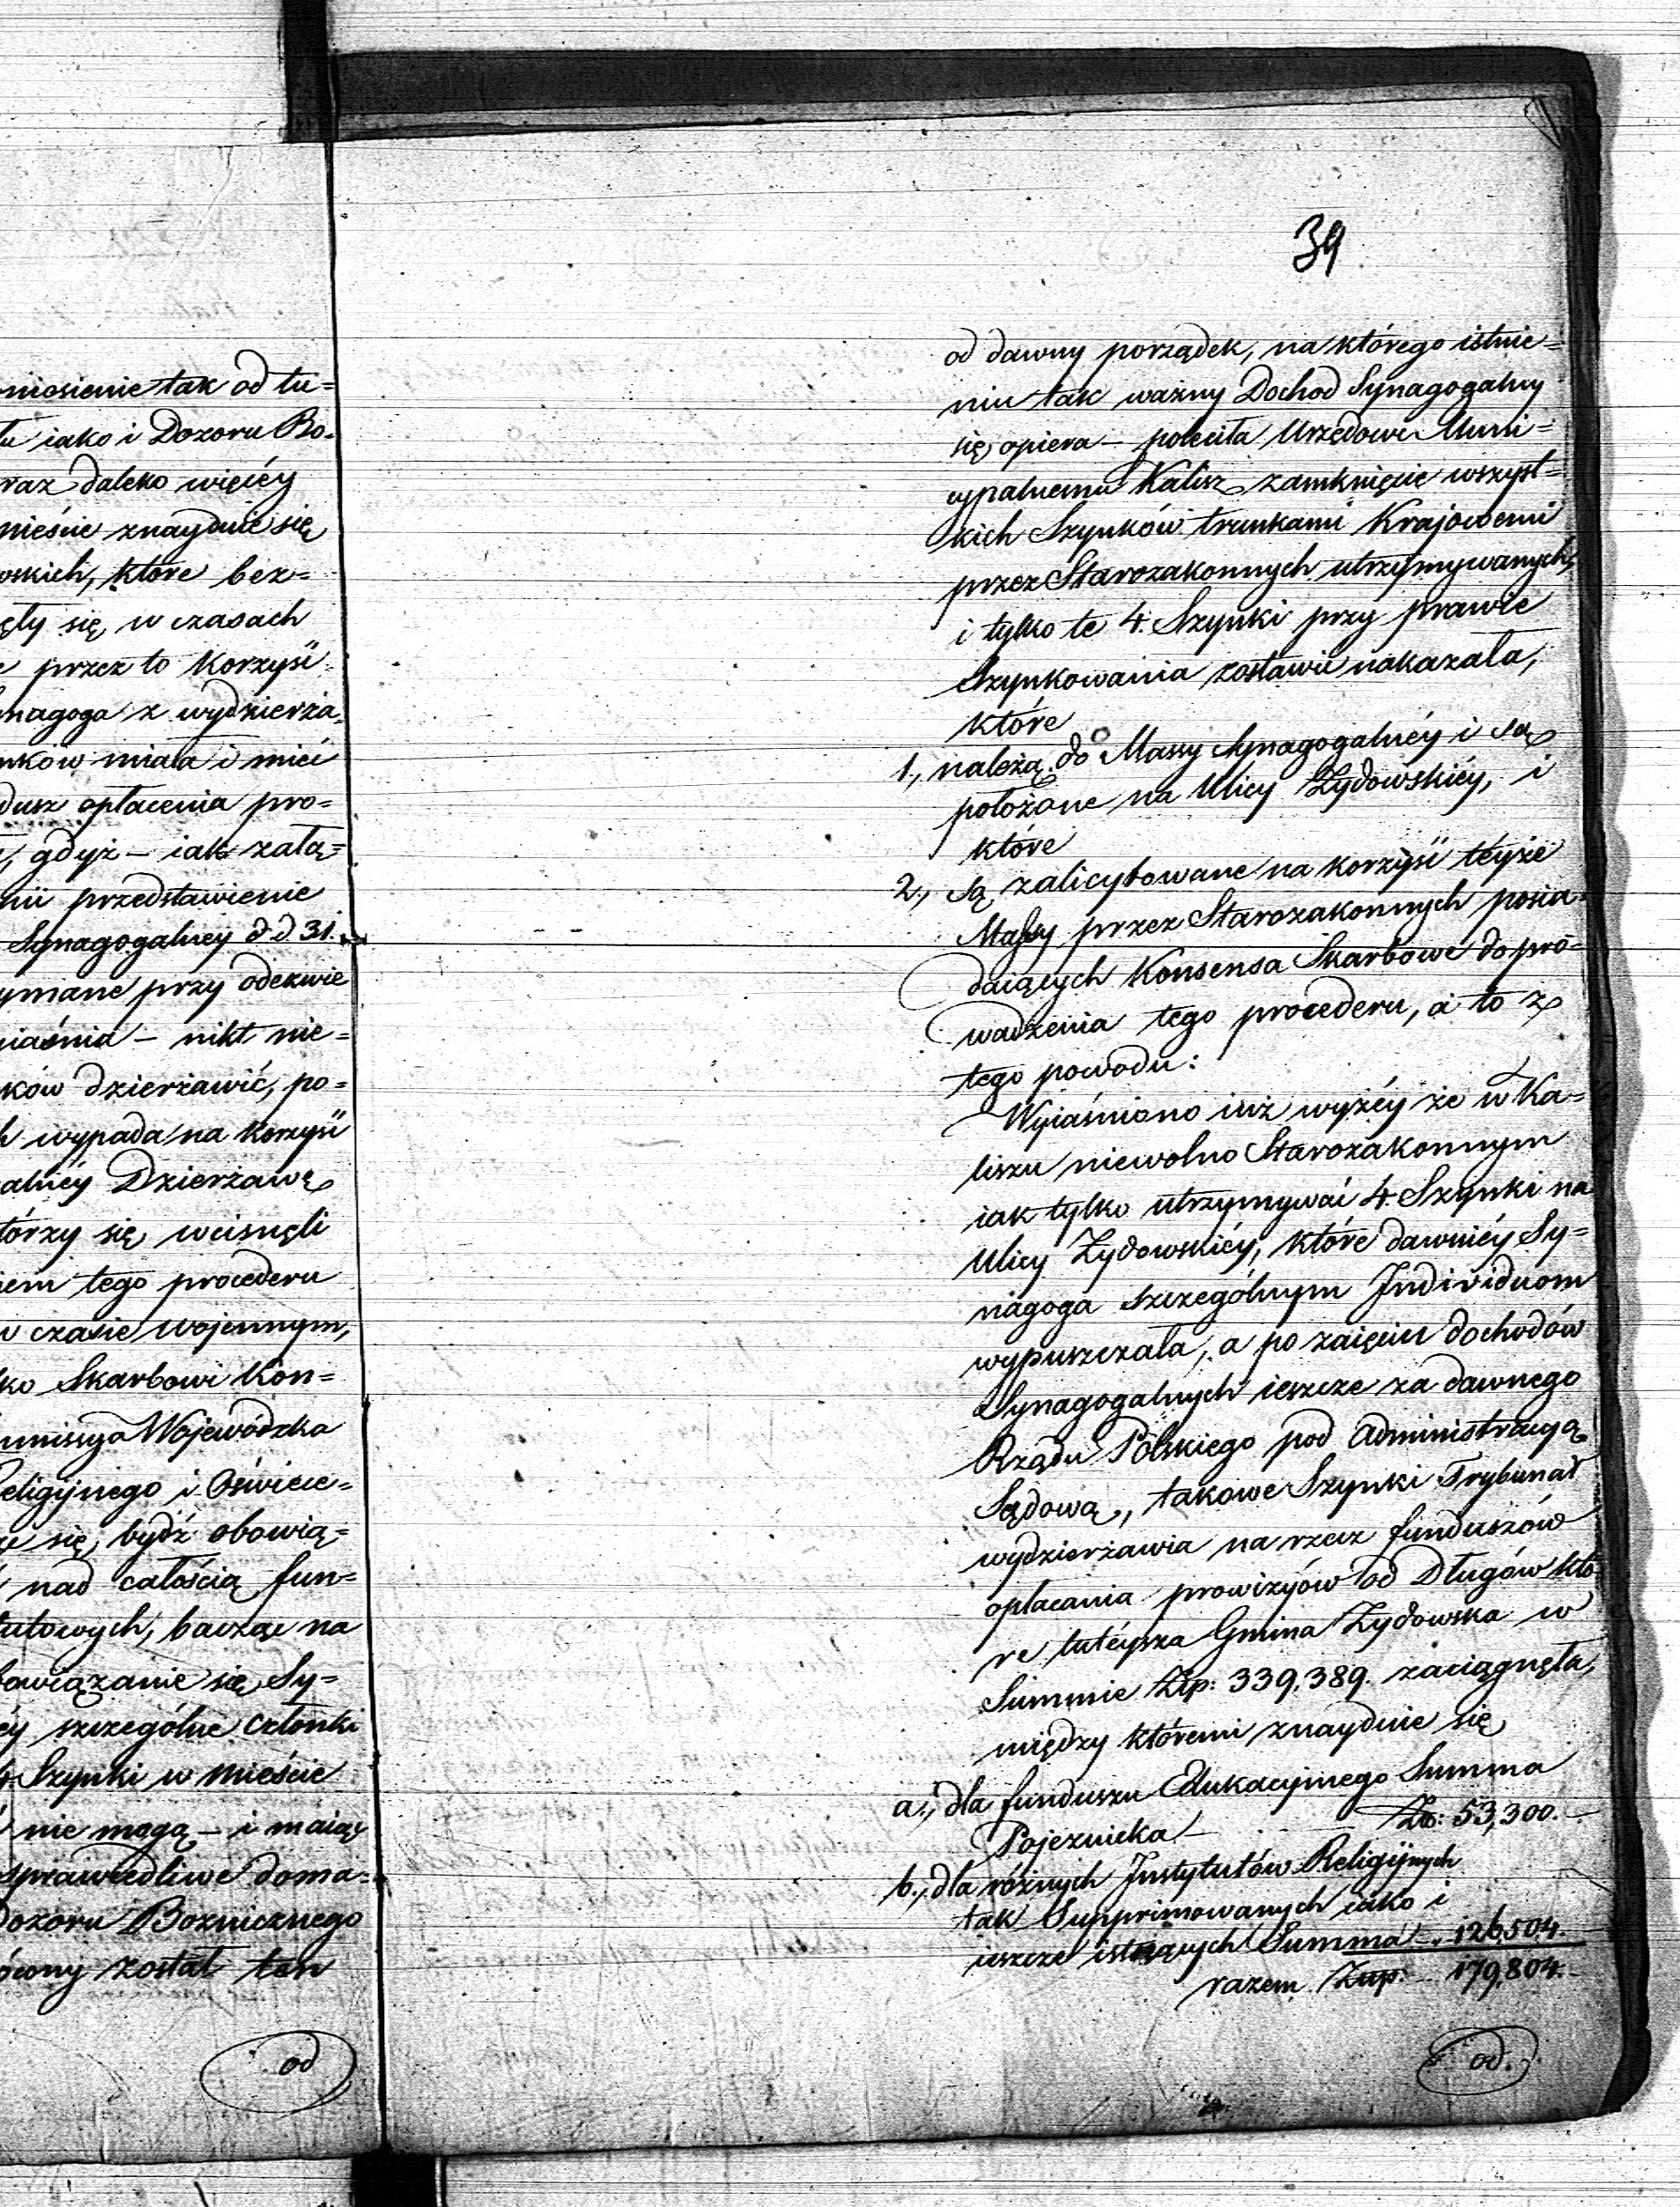 niesienie tak od tu=
tu iako i Dozoru Bo=
raz daleko więcéy
mieście znayduie się
skich, które bez=
ęły się w czasach
przez to korzyśi
nagoga z wydzierża=
nków miała i mieć
dusz opłacenia pro=
gdyż – iak załą=
nii przedstawienie
Synagogalney d. d. 31.
ymane przy odezwie
iaśnia – nikt nie=
ków dzierżawić, po=
wypada na korzyść
alnéy Dzierżawę
tórzy się wcisnęli
iem tego procederu
w czasie wojennym,
ko Skarbowi Kon=
mmissya Wojewódzka
eligijnego i Oświece=
się, bydź obowią=
nad całością fun=
tutowych, bacząc na
bowiązanie się Sy=
éy szczególne członki
4 Szynki w mieście
nie mogą – i maiąc
sprawiedliwe doma=
Dozoru Bozniczneg̣o
ócony został ten
od
39
od dawny porządek, na którego istnie=
niu tak ważny Dochod Synagogalny
się opiera – poleciła Urzędowi Muni=
cypalnemu Kalisz zamknięcie wszyst=
kich Szynków trunkami Krajowemi
przez Starozakonnych utrzymywanych,
i tylko te 4. Szynki przy prawie
Szynkowania zostawić nakazała,
które
1., należą do Massy Synagogalnéy i są
położone na Ulicy Żydowskiéy, i
które
2., są zalicytowane na korzyść téyże
Massy przez Starozakonnych posia=
daiących Konsensa Skarbowe do pro=
wadzenia tego procederu, a to z
tego powodu:
Wyiaśniono iuż wyżéy że w Ka=
liszu niewolno Starozakonnym
iak tylko utrzymywać 4. Szynki na
Ulicy Żydowskiéy, które dawniéy Sy=
nagoga szczególnym Individuom
wypuszczała, a po zaięciu dochodów
Synagogalnych ieszcze za dawnego
Rządu Polskiego pod administracyą
Sądową, takowe Szynki Trybunał
wydzierżawia na rzecz funduszów
opłacania prowizyów od Długów któ=
re tutéysza Gmina Żydowska w
Summie Złp: 339,389. zaciągnęła,
między któremi znayduie się
a., dla funduszu Edukacyjnego Summa
Pojezuicka – Zło: 53,300. –
b., dla różnych Instytutów Religijnych
tak Supprimowanych iako i
ieszcze istnących Summa – 126,504.
razem Złp: – 179,804. –
od.